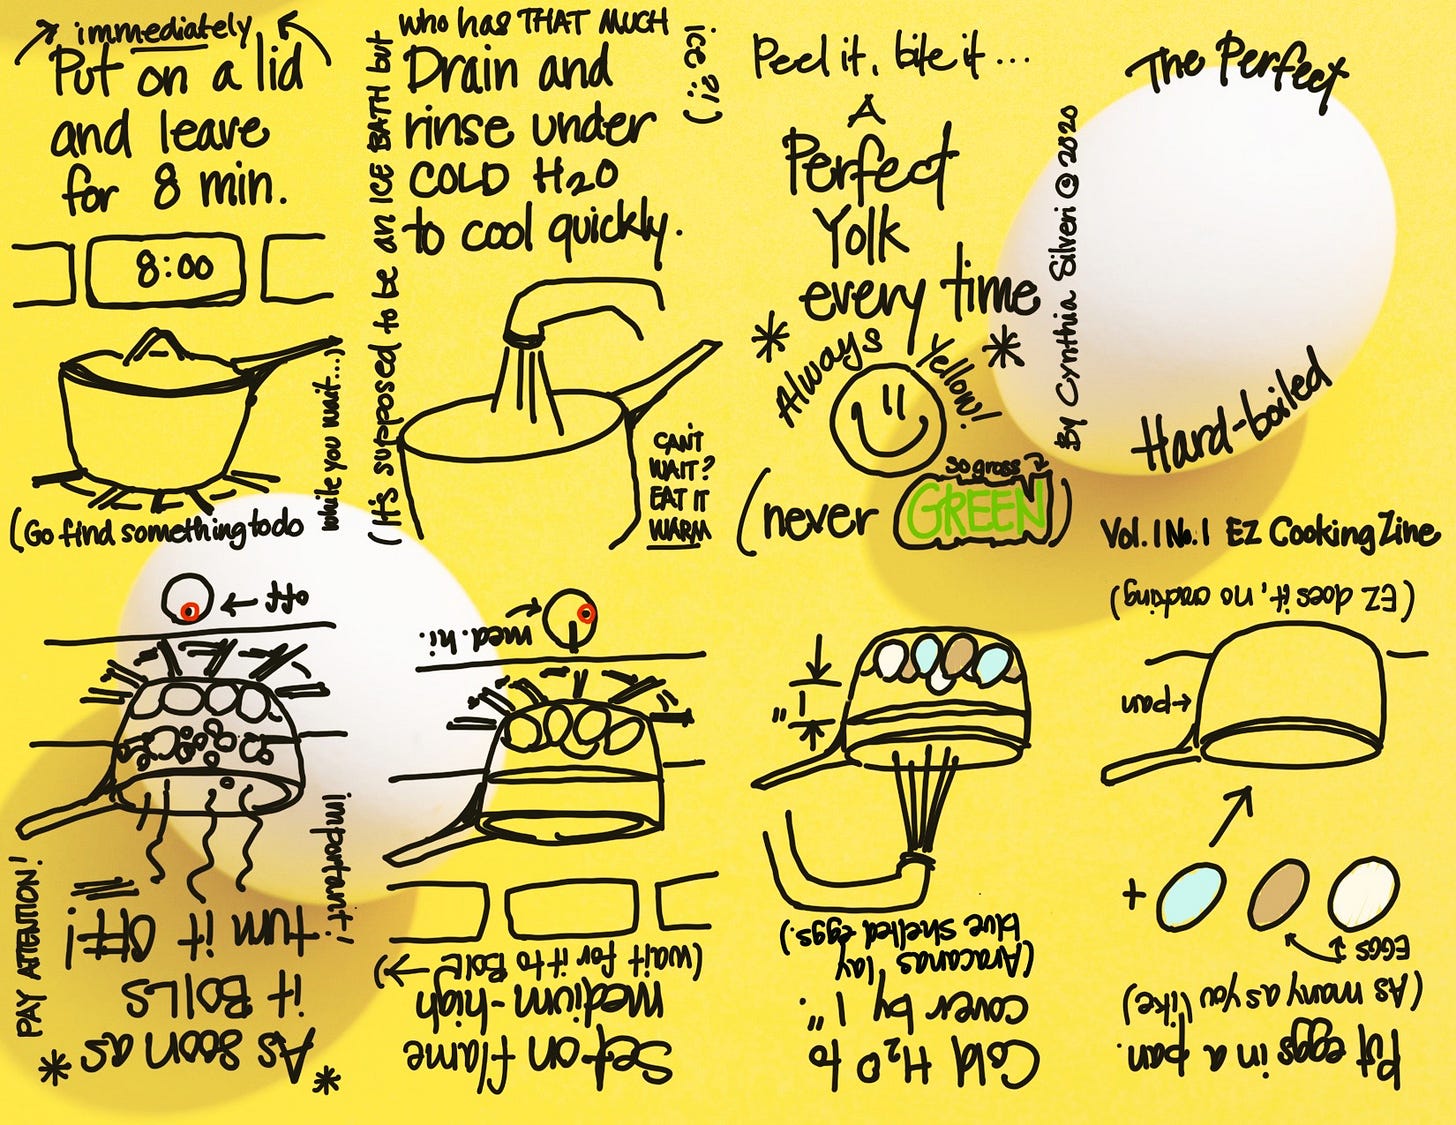 The Perfect
Hard-boiled
By Cynthia Silveri @ 2020
Vol. 1 No. 1 EZ Cooking Zine
Put eggs in a pan.
(As many as you like)
EGGS
+
pan
(EZ does it, no cracking)
Cold H2O to
cover by 1"
(Aracanas lay
blue shelled eggs.)
1"
Set on flame
medium-high
(wait for it to BOIL
med. hi.
* As soon as *
it BOILS
turn it off!
important!
PAY ATTENTION!
off
immediately
Put on a lid
and leave
for 8 min.
8:00
(Go find something to do
while you wait...)
(It's supposed to be an ICE BATH but
who has THAT MUCH
ice?!)
Drain and
rinse under
COLD H2O
to cool quickly.
CAN'T
WAIT?
EAT IT
WARM
Peel it, bite it...
A
Perfect
Yolk
every time
* Always Yellow! *
so gross
(never GREEN)